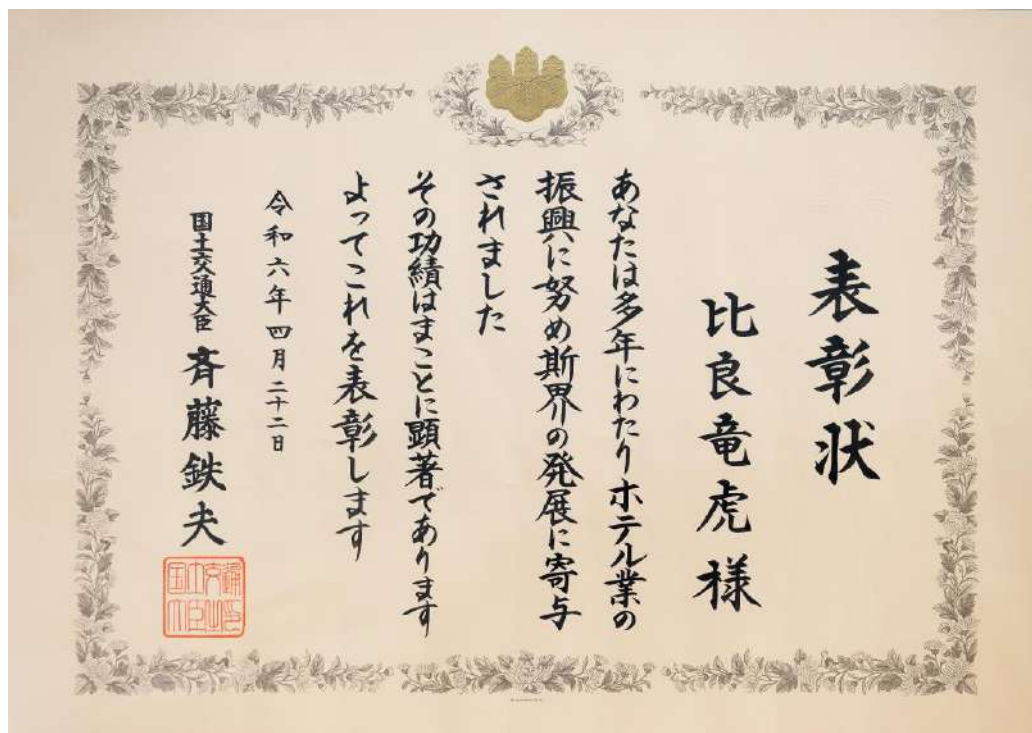 表彰状
比良竜虎様
あなたは多年にわたりホテル業の
振興に努め斯界の発展に寄与
されました
その功績はまことに顕著であります
よってこれを表彰します
令和六年四月二十二日
国土交通大臣 斉藤鉄夫